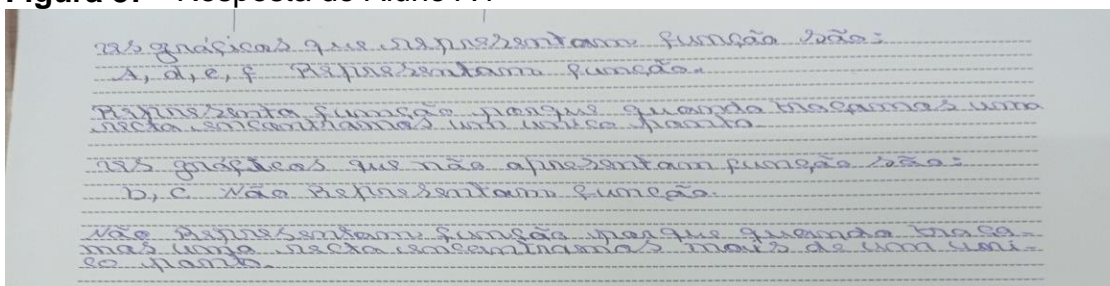 Os gráficos que representam função são:
A, d, e, f Representam função.
Representa função porque quando traçamos uma
recta encontramos um unico ponto.
Os gráficos que não apresentam função são:
b, c Não Representam função.
Não Representam função porque quando traça-
mos uma recta encontramos mais de um uni-
co ponto.